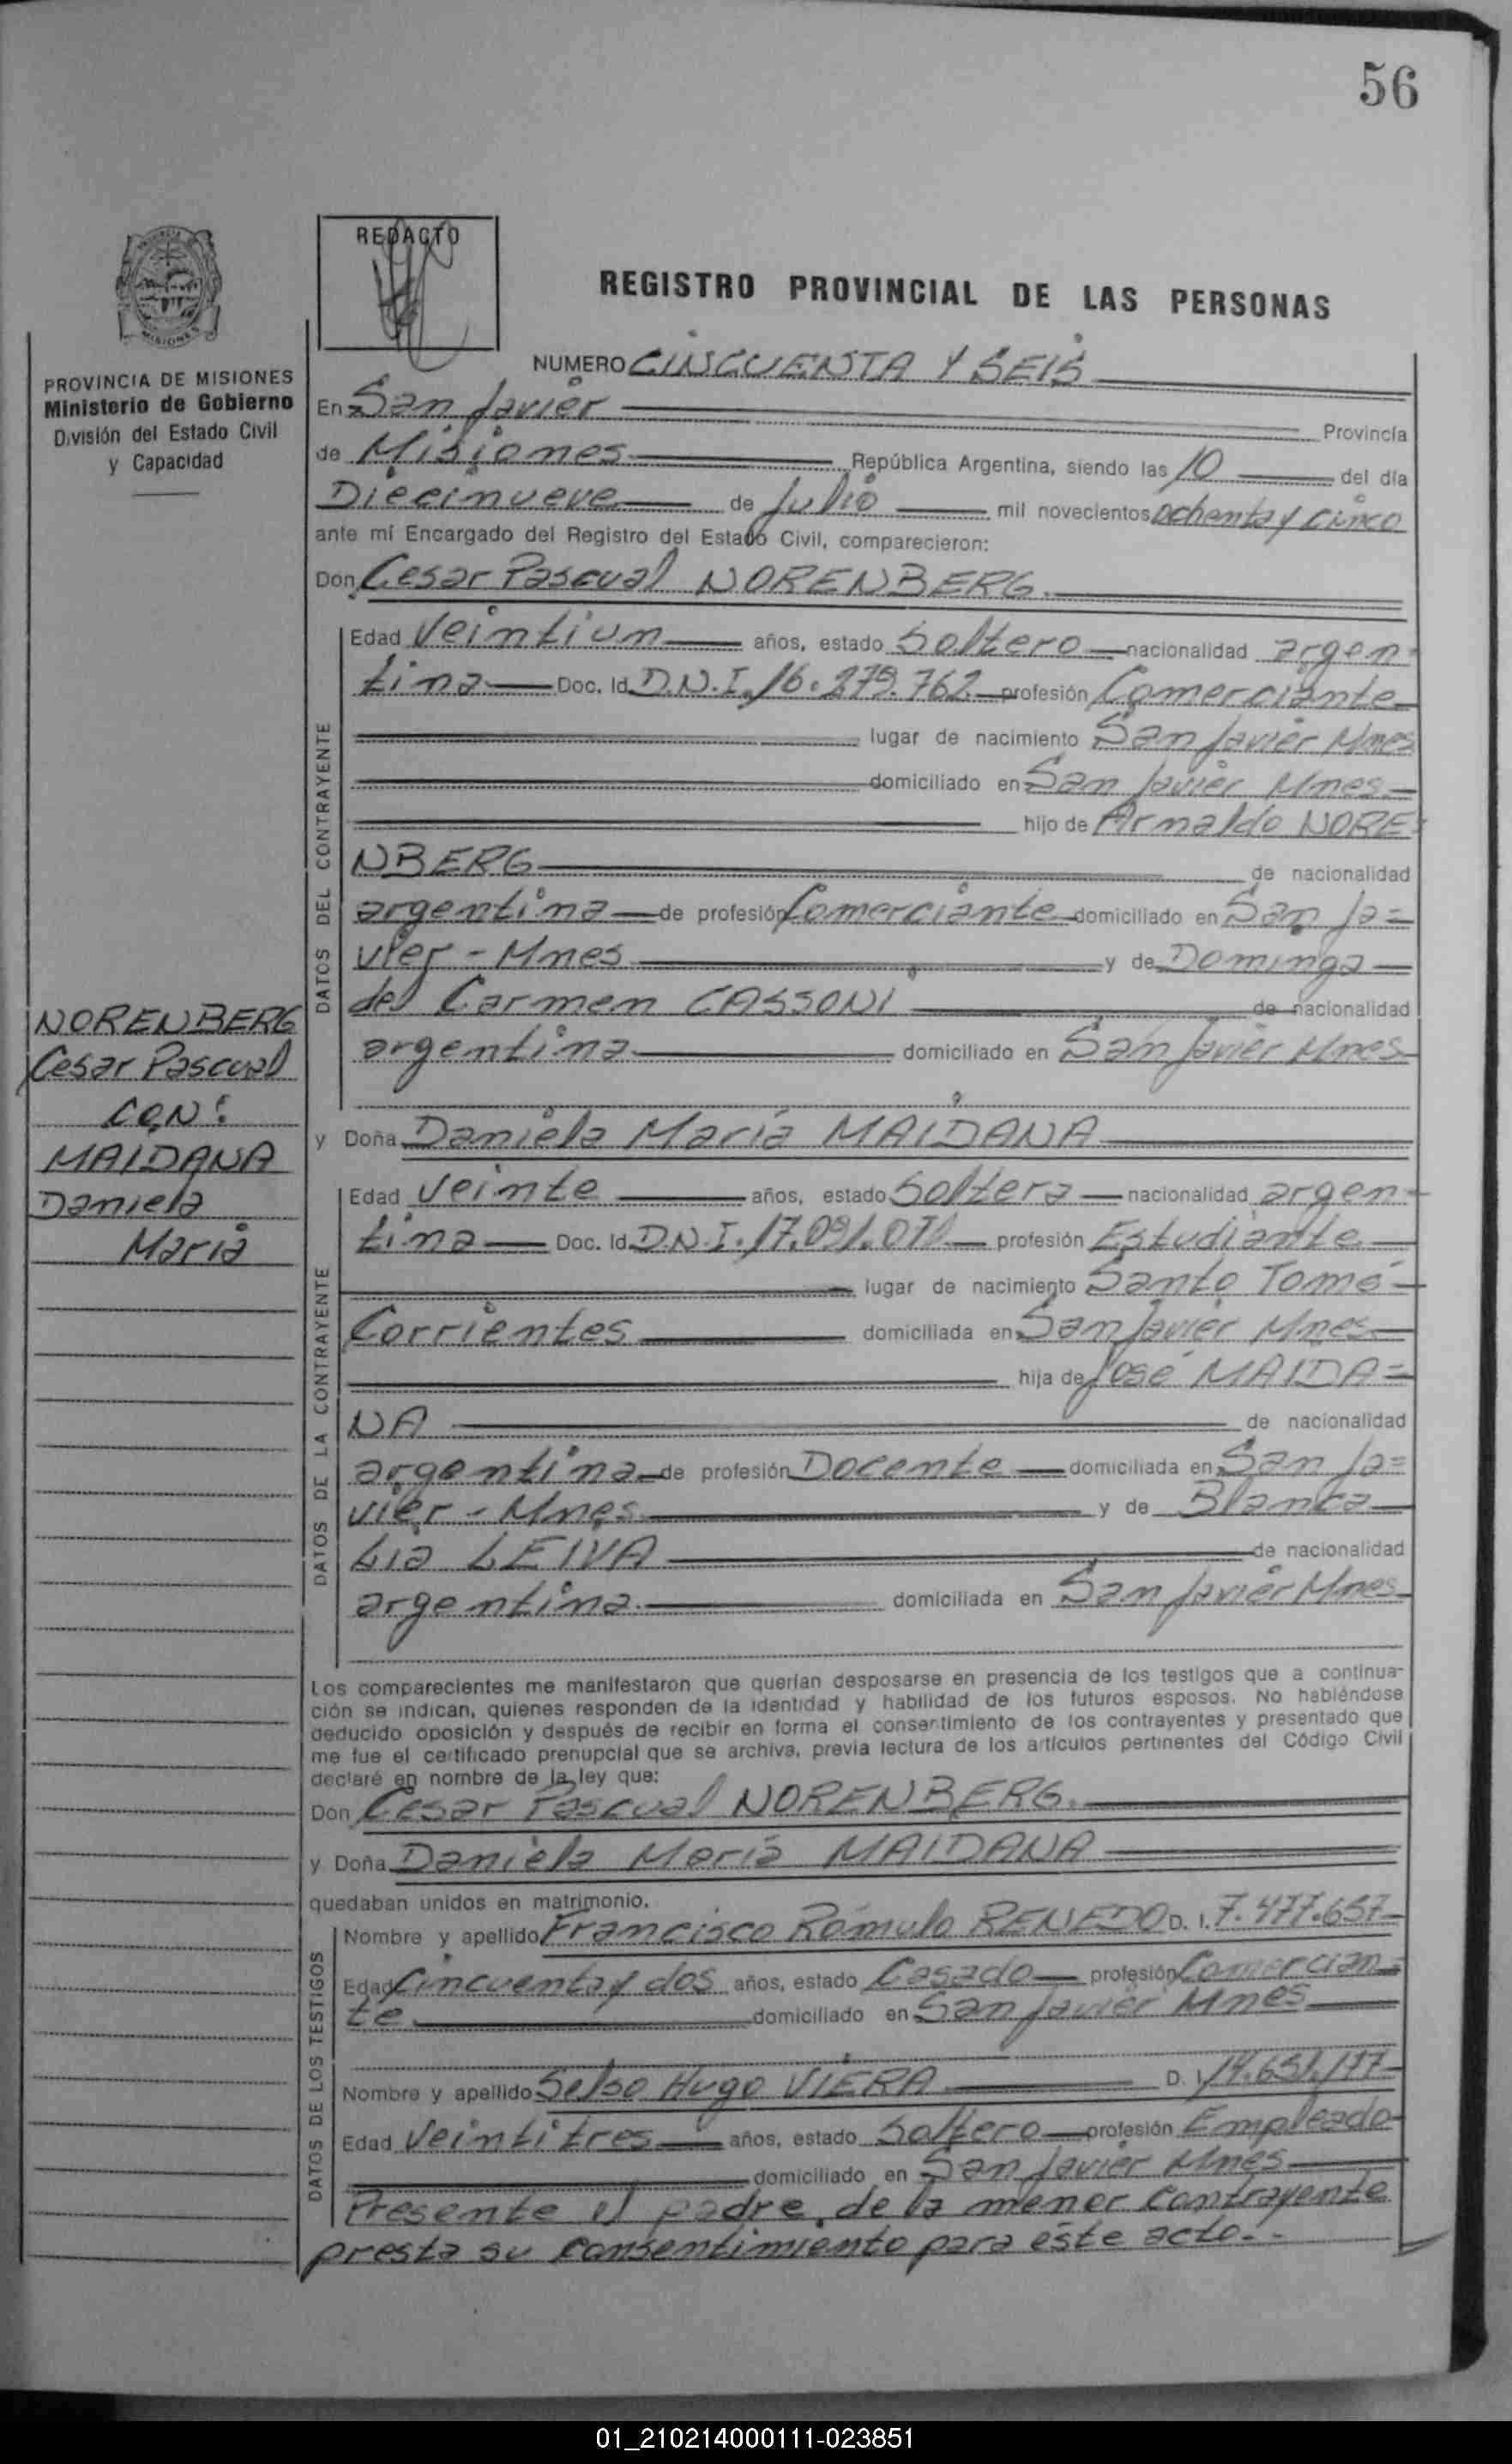 56
REDACTO
REGISTRO PROVINCIAL DE LAS PERSONAS
PROVINCIA DE MISIONES
Ministerio de Gobierno
División del Estado Civil
y Capacidad
NORENBERG
Cesar Pascual
CON:
MAIDANA
Daniela
María
NUMERO CINCUENTA Y SEIS
En San Javier Provincia
de Misiones República Argentina, siendo las 10 del día
Diecinueve de Julio mil novecientos ochenta y cinco
ante mí Encargado del Registro del Estado Civil, comparecieron:
Don Cesar Pascual NORENBERG.
DATOS DEL CONTRAYENTE
Edad Veintiun años, estado Soltero nacionalidad argen-
tina Doc. Id. D.N.I. 16.279.762 profesión Comerciante
lugar de nacimiento San Javier Mnes
domiciliado en San Javier Mnes
hijo de Arnaldo NORE-
NBERG de nacionalidad
argentina de profesión Comerciante domiciliado en San Ja=
vier - Mnes y de Dominga
del Carmen CASSONI de nacionalidad
argentina domiciliado en San Javier Mnes
y Doña Daniela María MAIDANA
DATOS DE LA CONTRAYENTE
Edad Veinte años, estado Soltera nacionalidad argen-
tina Doc. Id. D.N.I. 17.091.071 profesión Estudiante
lugar de nacimiento Santo Tomé
Corrientes domiciliada en San Javier Mnes
hija de José MAIDA=
NA de nacionalidad
argentina de profesión Docente domiciliada en San Ja=
vier - Mnes y de Blanca
Lia LEIVA de nacionalidad
argentina domiciliada en San Javier Mnes
Los comparecientes me manifestaron que querían desposarse en presencia de los testigos que a continua-
ción se indican, quienes responden de la identidad y habilidad de los futuros esposos. No habiéndose
deducido oposición y después de recibir en forma el consentimiento de los contrayentes y presentado que
me fue el certificado prenupcial que se archiva, previa lectura de los artículos pertinentes del Código Civil
declaré en nombre de la ley que:
Don Cesar Pascual NORENBERG.
y Doña Daniela María MAIDANA
quedaban unidos en matrimonio.
DATOS DE LOS TESTIGOS
Nombre y apellido Francisco Rómulo RENEDO D. I. 7.477.657
Edad Cincuenta y dos años, estado Casado profesión Comercian=
te domiciliado en San Javier Mnes
Nombre y apellido Selso Hugo VIERA D. I. 14.651.177
Edad Veintitres años, estado Soltero profesión Empleado
domiciliado en San Javier Mnes
Presente el padre de la menor contrayente
presta su consentimiento para éste acto.-
01_210214000111-023851